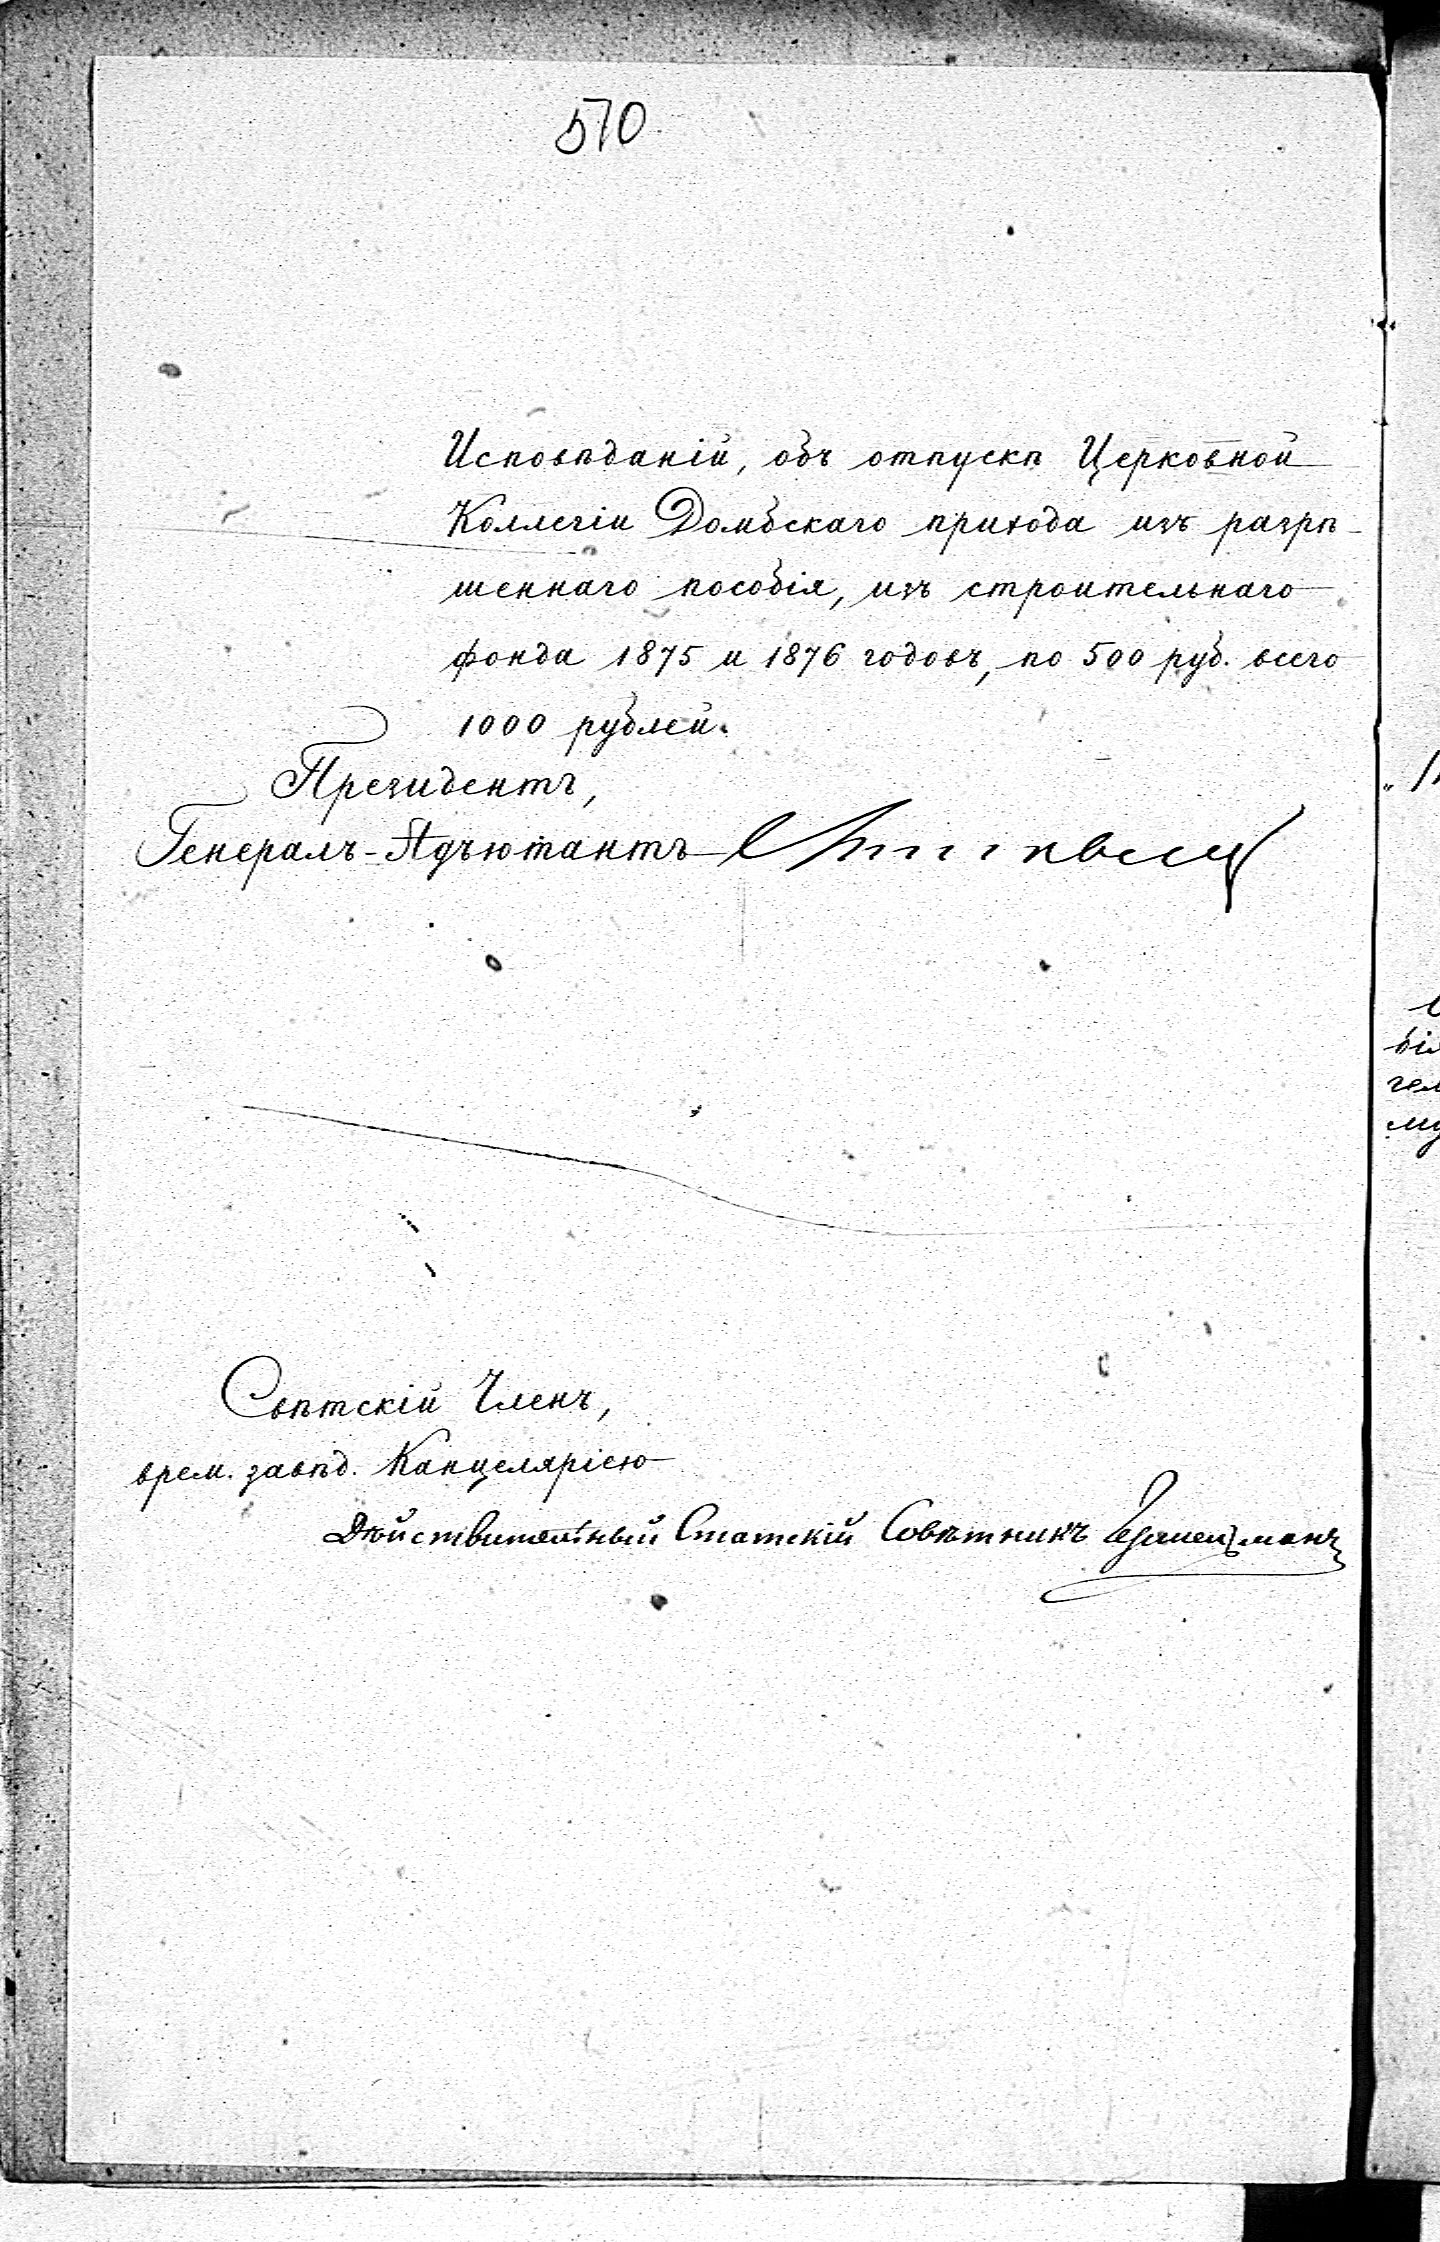 570
Исповѣданій, объ отпускѣ Церковной
Коллегіи Домбскаго прихода изъ разрѣ-
шеннаго пособія, изъ строительнаго
фонда 1875 и 1876 годовъ, по 500 руб. всего
1000 рублей.
Президентъ,
Генералъ-Адъютантъ
Свѣтскій Членъ,
врем. завѣд. Канцеляріею
Дѣйствительный Статскій Совѣтникъ